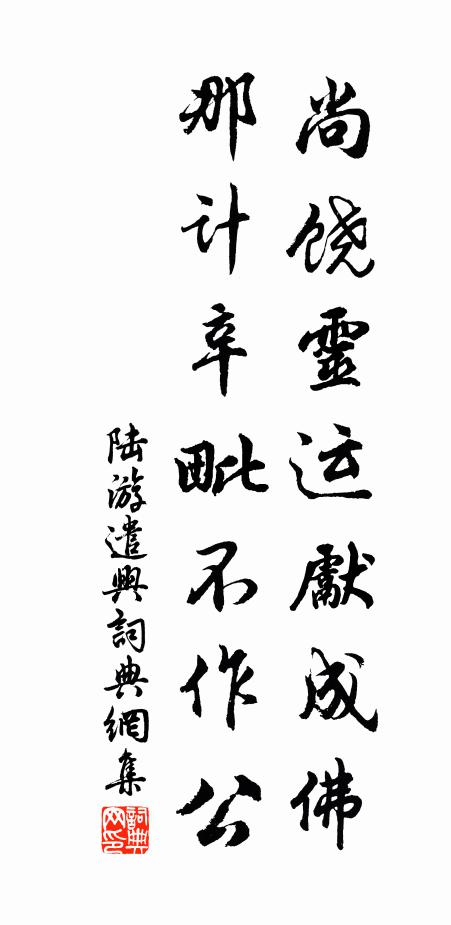 尚饶靈运獻成佛
那计辛毗不作公
陆游遣興詞典網集
詞典网印